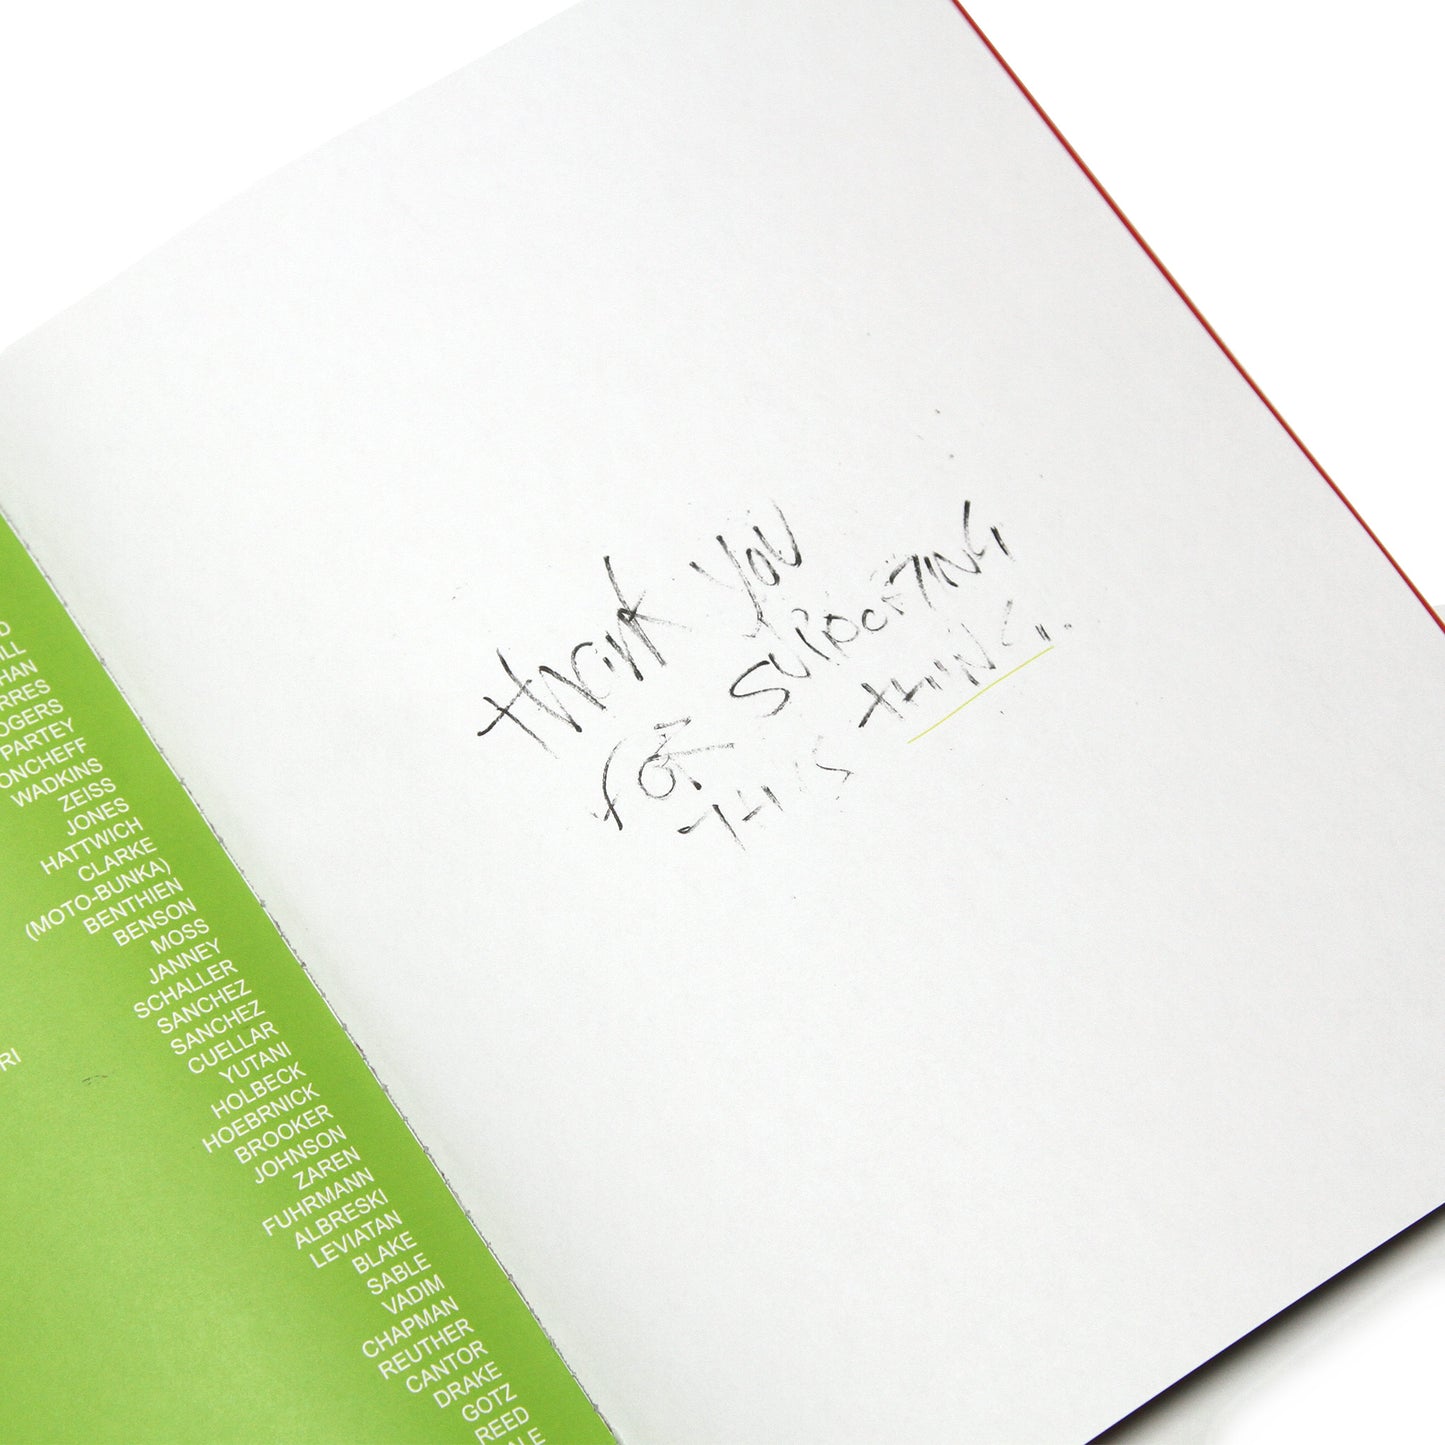 ILL
HAN
RRES
OGERS
PARTEY
ONCHEFF
WADKINS
ZEISS
JONES
HATTWICH
CLARKE
(MOTO-BUNKA)
BENTHIEN
BENSON
MOSS
JANNEY
SCHALLER
SANCHEZ
SANCHEZ
CUELLAR
YUTANI
HOLBECK
HOEBRNICK
BROOKER
JOHNSON
ZAREN
FUHRMANN
ALBRESKI
LEVIATAN
BLAKE
SABLE
VADIM
CHAPMAN
REUTHER
CANTOR
DRAKE
GOTZ
REED
ALE
RI
THANK YOU
FOR SUPPORTING
THIS THING.